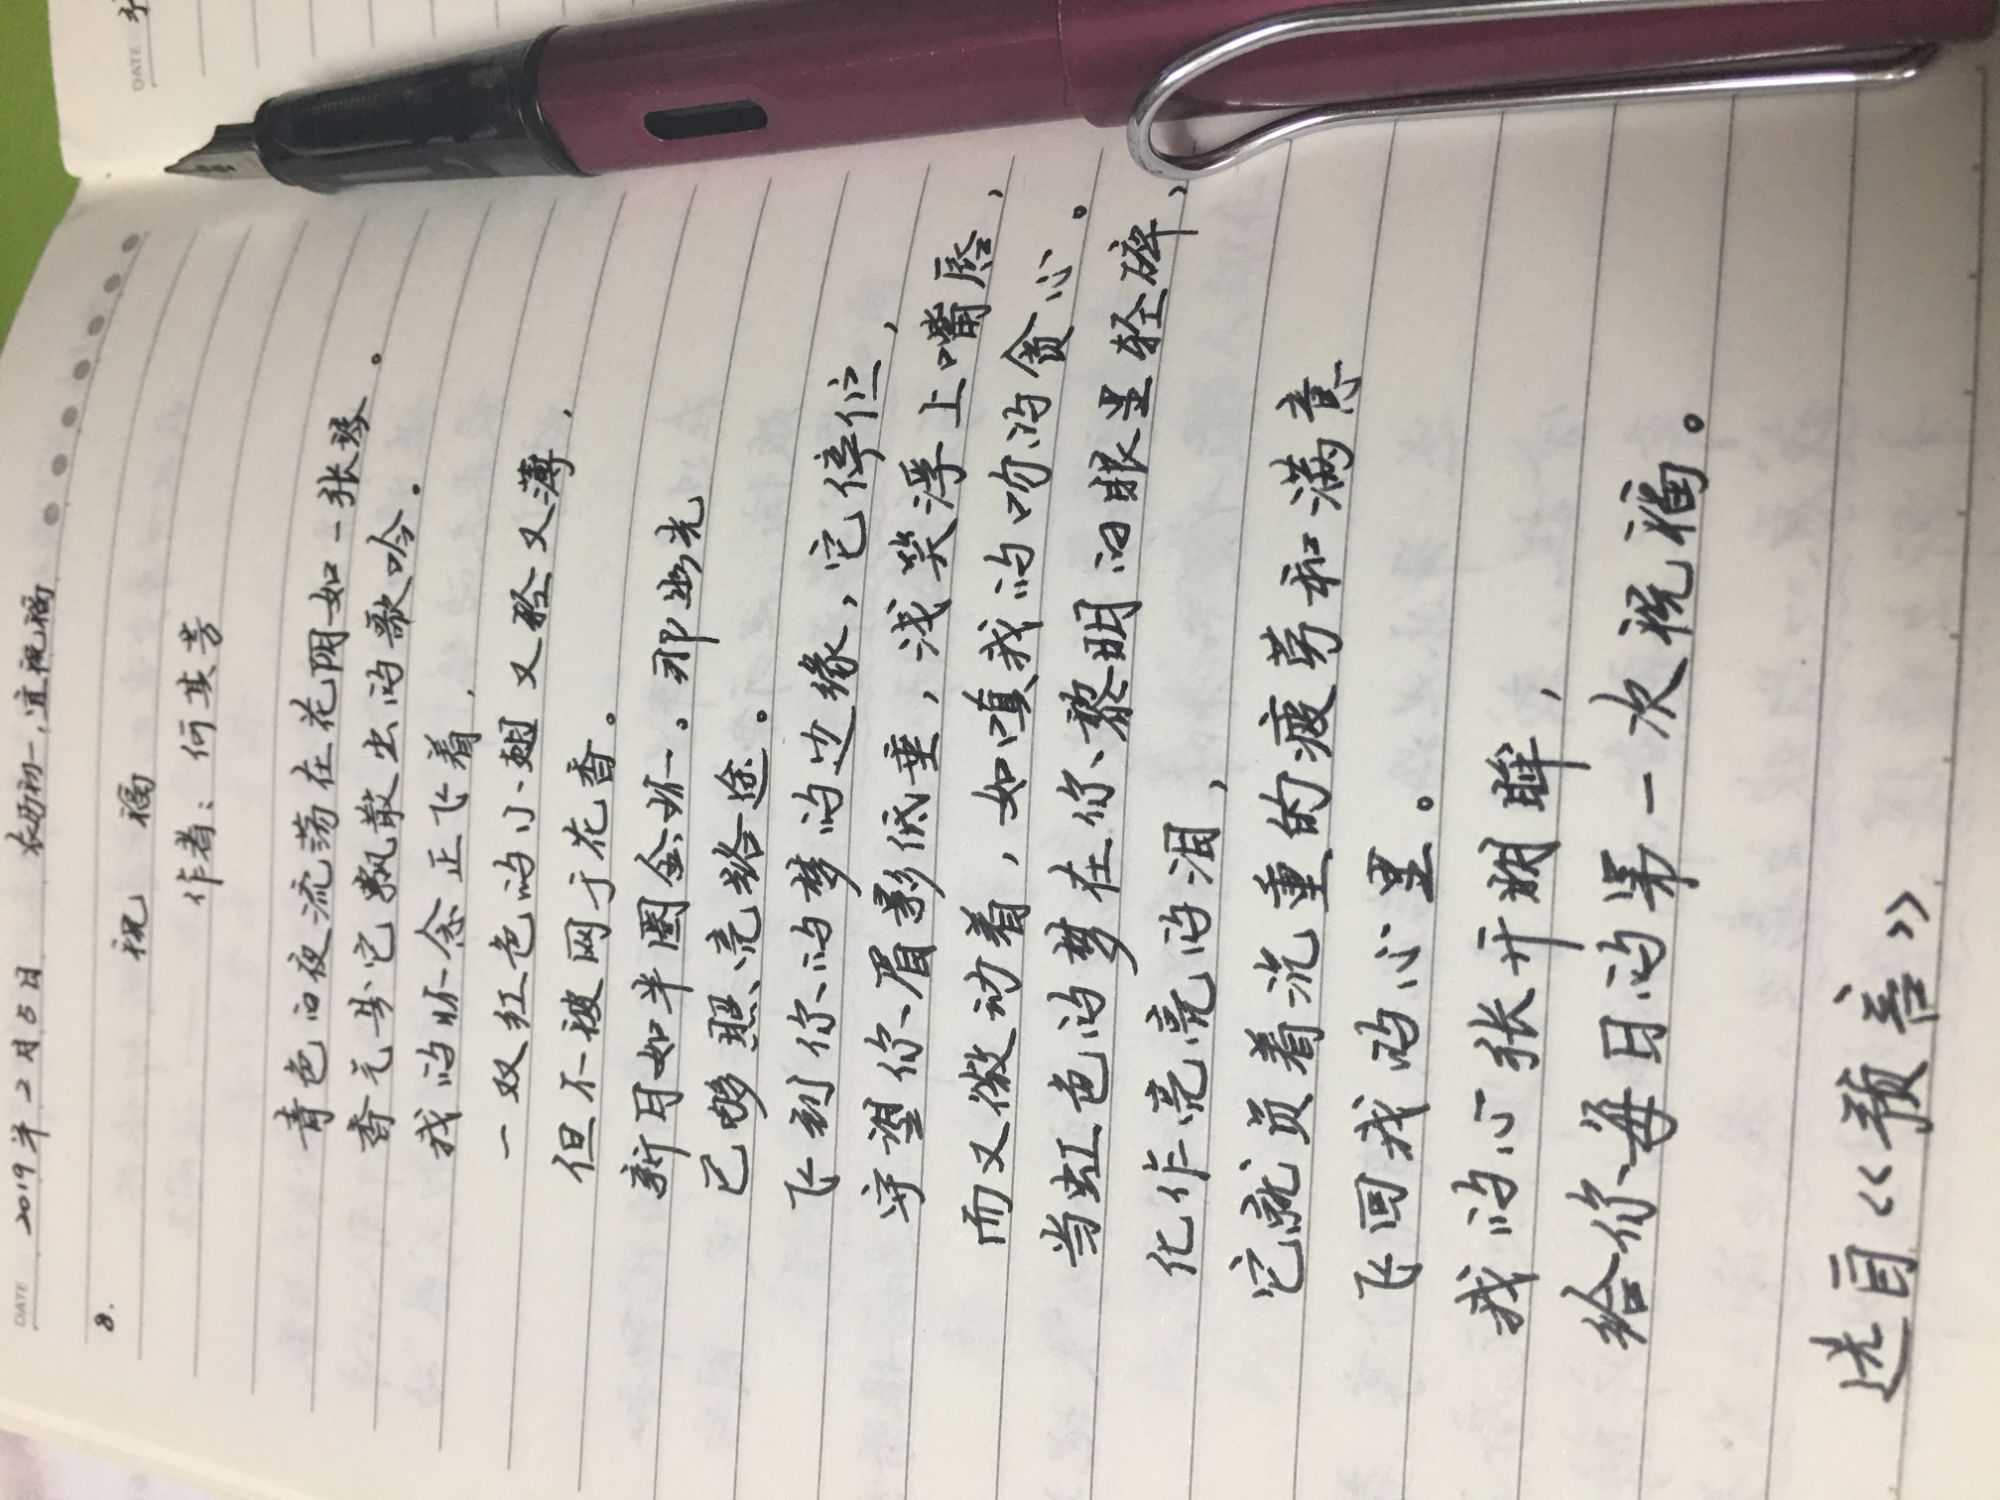 DATE 2019年2月5日 农历初一,宜祝福
8.
祝 福
作者：何其芳
青色的夜流荡在花阴如一张琴。
香气是它飘散出的歌吟。
我的怀念正飞着，
一双红色的小翅又轻又薄，
但不被网于花香。
新月如半圈金环。那幽光
已够照亮路途。
飞到你的梦的边缘，它停伫，
守望你眉影低垂，浅笑浮上嘴唇，
而又微动着，如嗔我的吻的贪心。
当虹色的梦在你黎明的眼里轻碎，
化作亮亮的泪，
它就负着沉重的疲劳和满意
飞回我的心里。
我的心张开明眸，
给你每日的第一次祝福。
选自《预言》
DATE